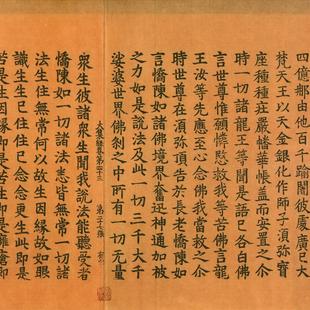 四億那由他百千踰闍彼處廣已大
梵天王以天金銀化作師子須弥寶
座種種莊嚴幡華帳盖而安置之尒
時一切諸龍王等聞是語已各白佛
言世尊惟願憐愍救我世苦佛言龍
王汝等先應至心念佛我當救之尒
時世尊在須弥頂告於長老憍陳如
言憍陳如諸佛境界奮迅神通加被
之力如是說法及此一切三千大千
娑婆世界佛刹之中所有一切无量
大集經卷第 十三 第十七張
衆生彼諸衆生聞我說法能聽受者
憍陳如一切諸法悉皆無常一切諸
法生住無常何以故生因緣故如眼
識生生已住住已念念更生此即是
苦是生因緣即是苦生即是 瘡即